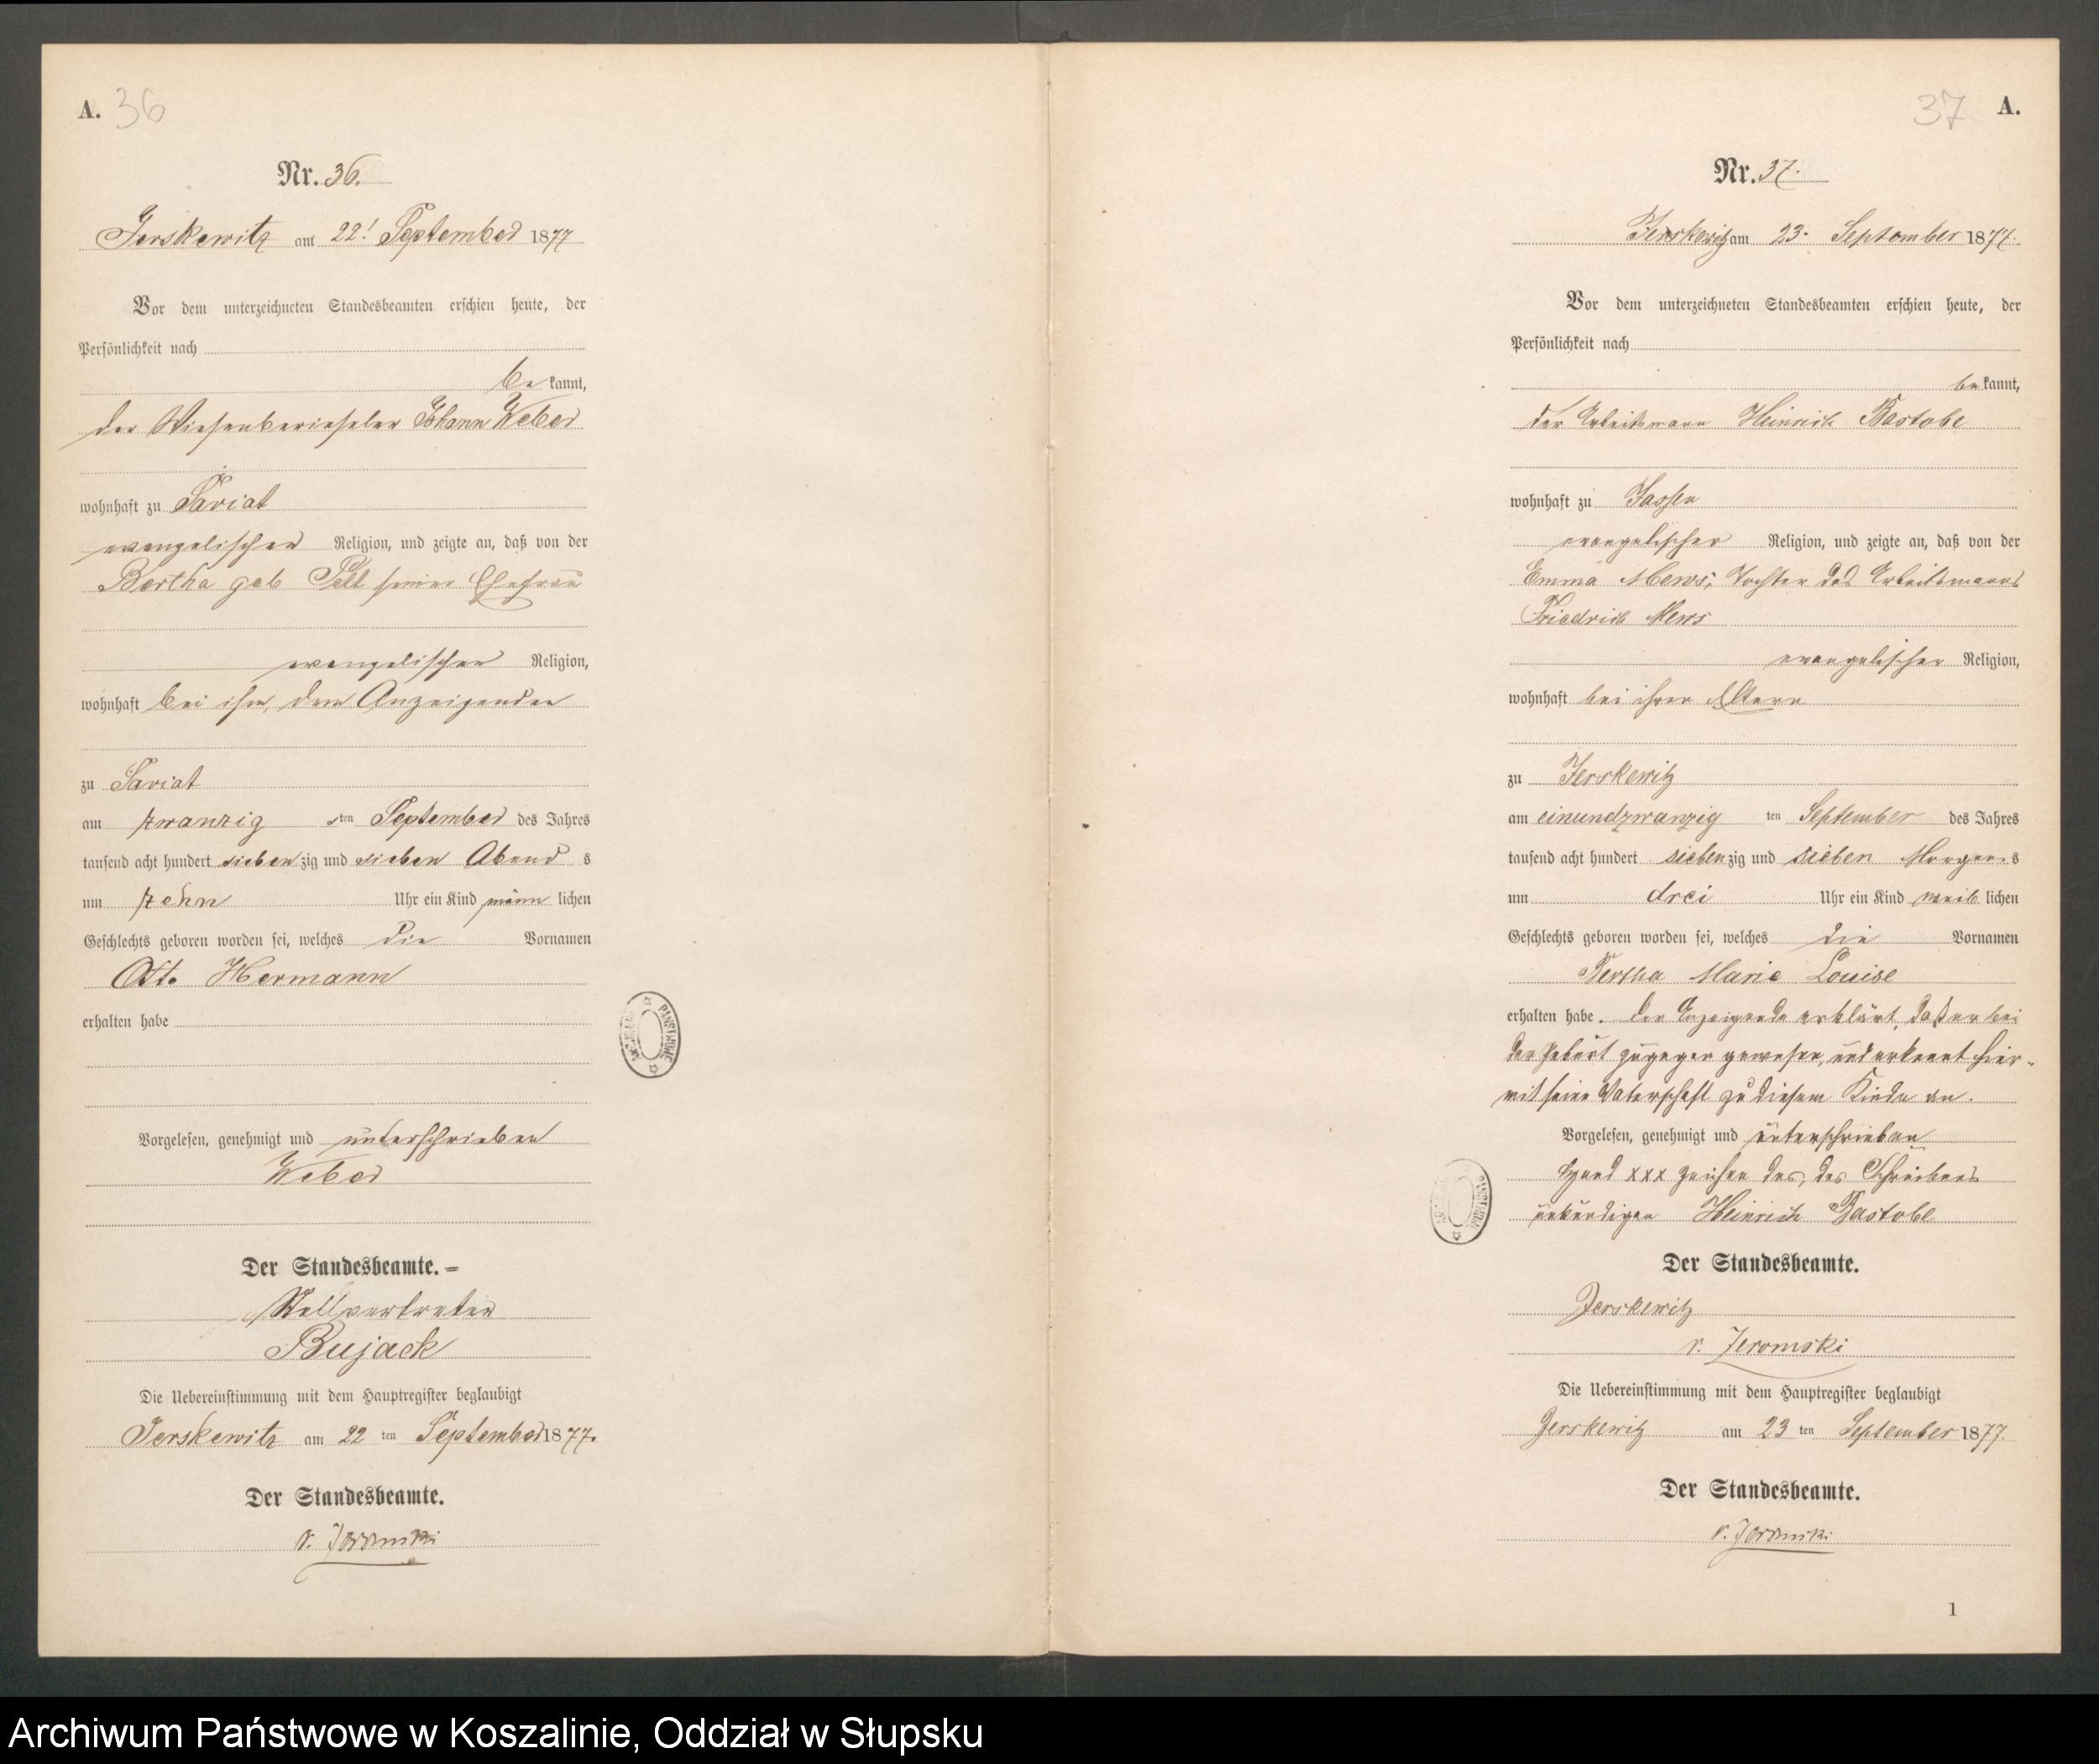 A. 36
Nr. 36.
Jerskewitz am 22! September 1877
Vor dem unterzeichneten Standesbeamten erschien heute, der
Persönlichkeit nach
be kannt,
der Wiesenberieseler Johann Weber
wohnhaft zu Pariat
evangelischer Religion, und zeigte an, daß von der
Bertha geb seiner Ehefrau
evangelischer Religion,
wohnhaft bei ihm, dem Anzeigenden
zu Pariat
am zwanzig sten September des Jahres
tausend acht hundert sieben zig und sieben Abend s
um zehn Uhr ein Kind männ lichen
Geschlechts geboren worden sei, welches die Vornamen
Otto Hermann
erhalten habe
Vorgelesen, genehmigt und unterschrieben
Weber
Der Standesbeamte.
Stellvertreter
Bujack
Die Uebereinstimmung mit dem Hauptregister beglaubigt
Jerskewitz am 22 ten September 1877.
Der Standesbeamte.
v. Jeromski
37 A.
Nr. 37.
Jerskewitz am 23. September 1877.
Vor dem unterzeichneten Standesbeamten erschien heute, der
Persönlichkeit nach
be kannt,
der Arbeitsmann Heinrich Bastobe
wohnhaft zu Jassen
evangelischer Religion, und zeigte an, daß von der
Emma Mews, Tochter des Arbeitsmanns
Friedrich Mews
evangelischer Religion,
wohnhaft bei ihren Eltern
zu Jerskewitz
am einundzwanzig ten September des Jahres
tausend acht hundert sieben zig und sieben Morgen s
um drei Uhr ein Kind weib lichen
Geschlechts geboren worden sei, welches die Vornamen
Bertha Marie Louise
erhalten habe. Der Anzeigende erklärt, daß er bei
der Geburt zugegen gewesen, und erkennt hier-
mit seine Vaterschaft zu diesem Kinde an.
Vorgelesen, genehmigt und unterschrieben
Hand xxx zeichen des, des Schreibens
unkundigen Heinrich Bastobe
Der Standesbeamte.
Jerskewitz
v. Jeromski
Die Uebereinstimmung mit dem Hauptregister beglaubigt
Jerskewitz am 23 ten September 1877.
Der Standesbeamte.
v. Jeromski
1
Archiwum Państwowe w Koszalinie, Oddział w Słupsku